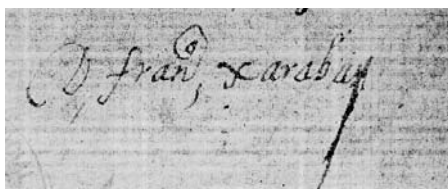 D franco, xaraba